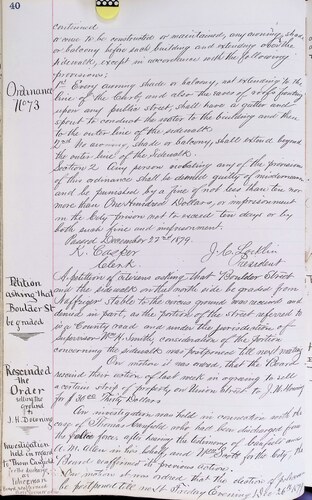 40
continued
or cause to be constructed or maintained, any awning, shade
or balcony before such building and extending over the
sidewalk, except in accordance with the following
provisions;
Ordinance
No 73
1st Every awning shade or balcony, not extending to the
line of the Curb, and also the eaves of roofs fronting
upon any public street, shall have a gutter and
spout to conduct the water to the building and then
to the outer line of the sidewalk.
2nd No awning, shade or balcony, shall extend beyond
the outer line of the sidewalk.
Section 2 Any person violating any of the provisions
of this ordinance shall be deemed guilty of misdemeanor
and be punished by a fine of not less than ten nor
more than One Hundred Dollars, or imprisonment
in the City prison not to exceed ten days or by
both such fine and imprisonment.
Passed December 22nd 1879.
K. Casper
Clerk
President
Petition
asking that
Boulder St
be graded
A petition of citizens asking that Boulder Street
and the sidewalk on the north side be graded from
stable to the circus ground was received and
denied in part, as the portion of the street referred to
is a County road and under the jurisdiction of
Supervisor Wm H. Smith, consideration of the portion
concerning the sidewalk was postponed till next meeting
Rescinded
the
Order
selling lot
ground
to
J. H. Downing
On motion it was ordered, that the Board
rescind their action of last week in agreeing to sell
a certain strip of property on Union Street to J. H. Downing
for $30.00 Thirty Dollars
Investigation
held in regard
to Thomas Canfield
discharge as
Policeman
An investigation was held in connection with the
case of Thomas Canfield who had been discharged from
the police force, after hearing the testimony of Canfield and
A. M. Olen in his behalf, and Wm Scott for the City, the
Board reaffirmed its previous action.
On motion it was ordered that the election of police
be postponed till next Monday Evening Dec 29th 1879